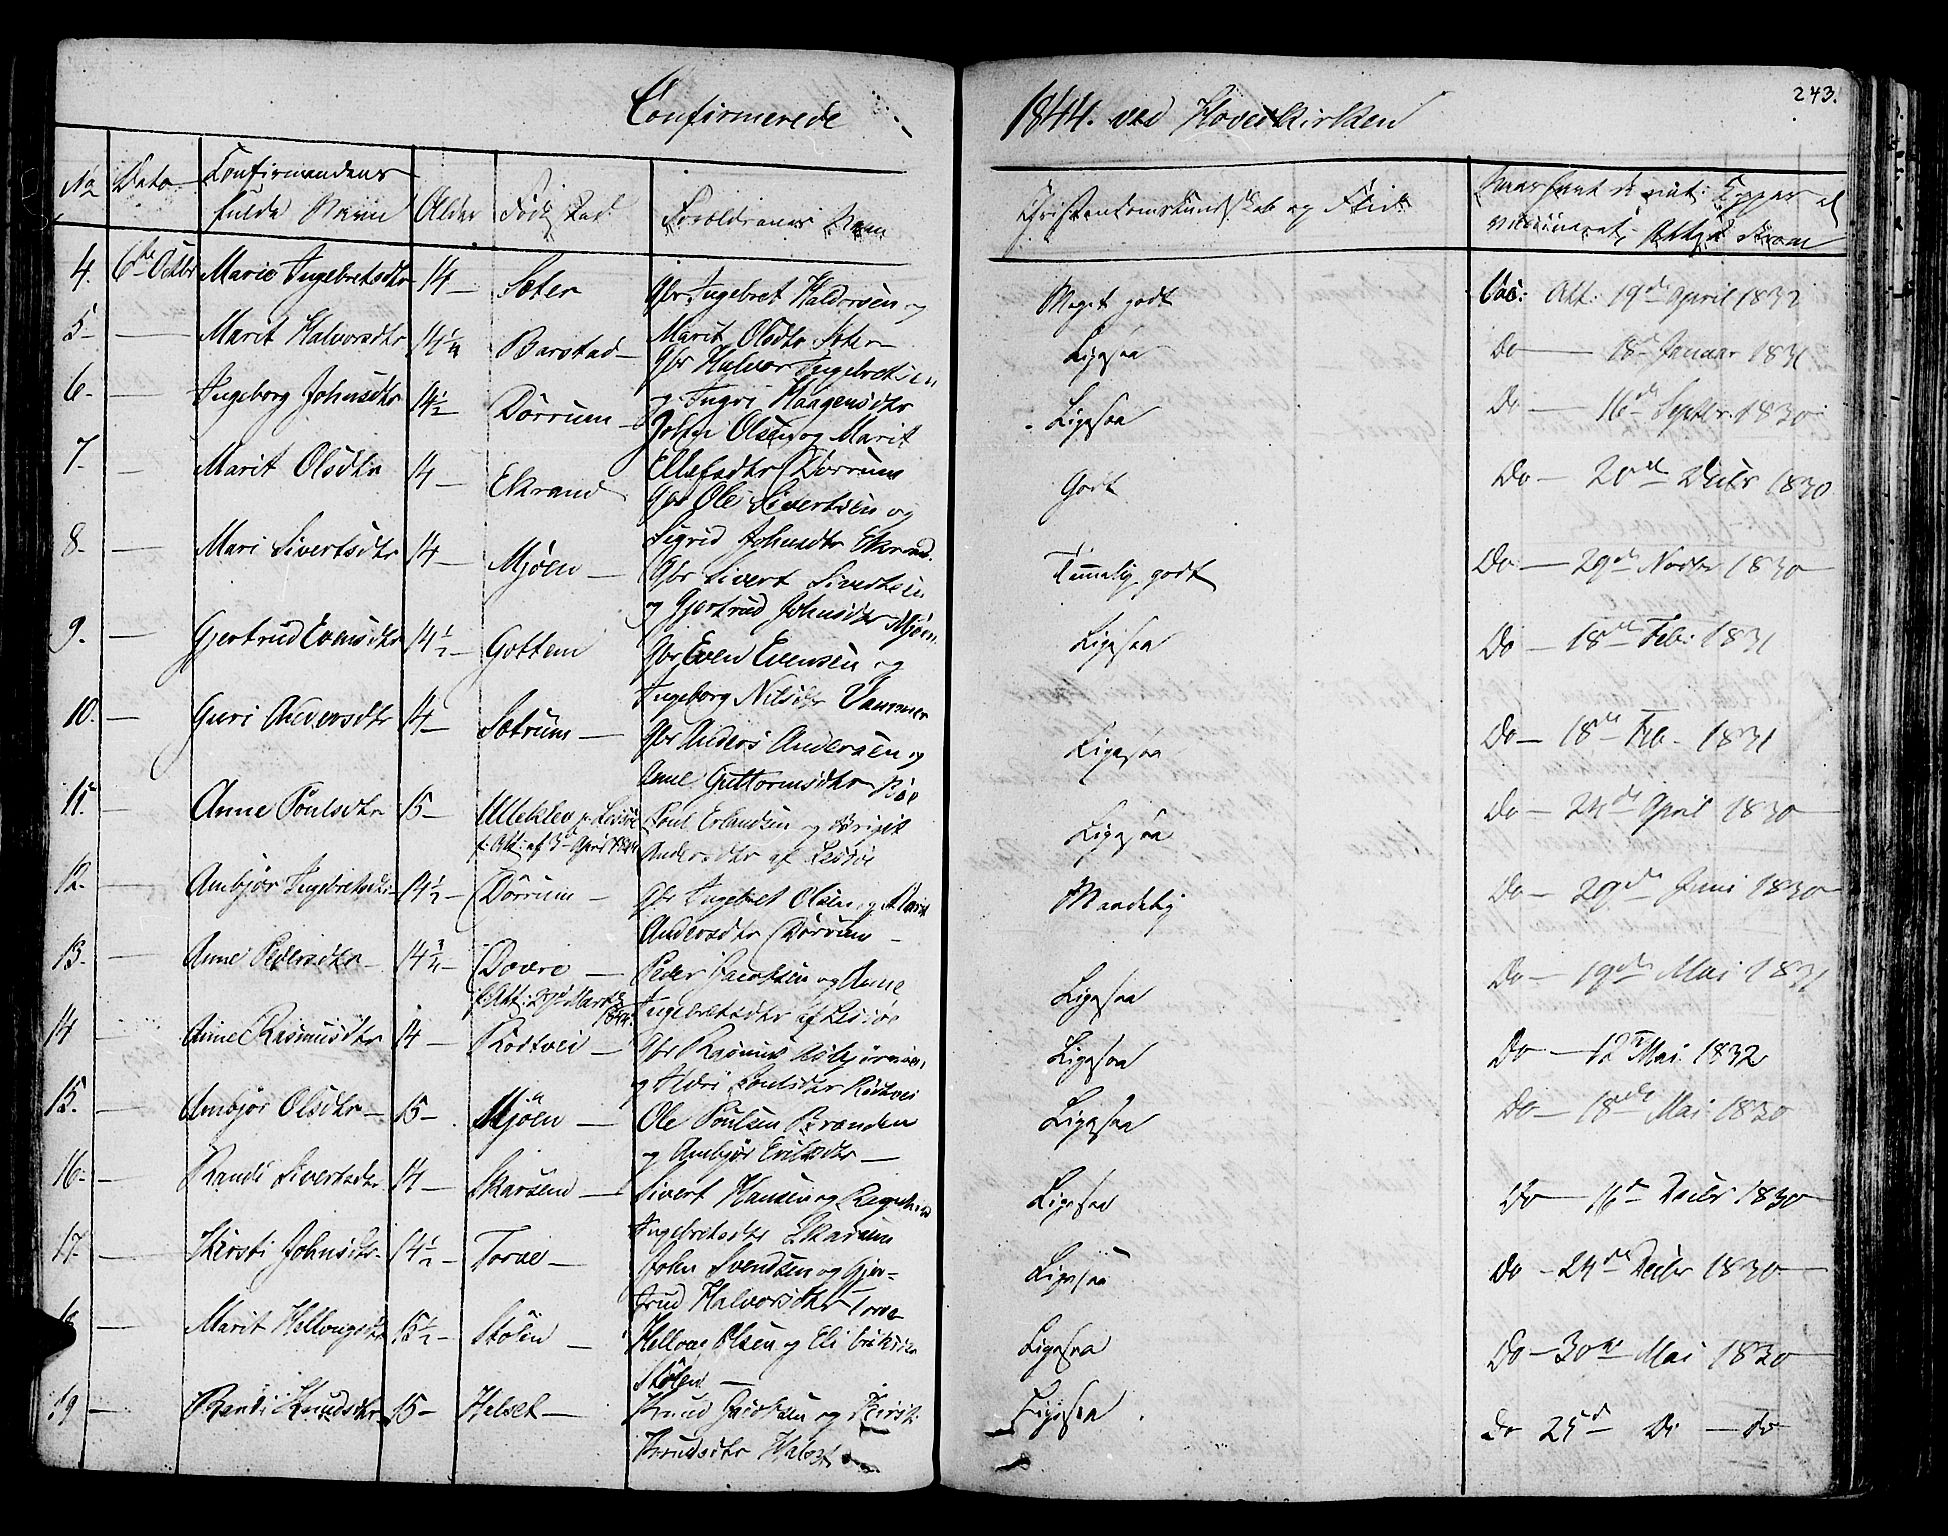 Confirmerede 1844. ved Hovedkirken
243.
No Dato Confirmandens fulde Navn Alder Føde Sted Forældrenes Navn Christendomskundskab og Flid Naar havt de nat: Kopper el vaccineret,
4. 6te Octbr Marie Ingebretsdtr 14 – Sæter Gbr Ingebret Haldorsen og Meget godt Vac: Att: 19de April 1832
Marit Olsdtr Sæter
5 – Marit Halvorsdtr 14 1/4 Barstad – Gbr Halvor Ingebretsen Ligesaa Do – 18de Januar 1831
og Ingri Haagensdtr
6. – Ingeborg Johnsdtr 14 1/2 Dörrum – John Olsen og Marit Ligesaa Do – 16de Septbr. 1830
Ellefsdtr Dörrum
7. – Marit Olsdtr 14 – Ekrand Gbr Ole Sivertsen og Godt Do – 20de Decbr 1830
Sigrid Johnsdtr Ekrand.
8. – Mari Sivertsdtr 14 – Mjøen – Gbr Sivert Sivertsen Temmelig godt Do – 29de Novbr 1830
og Gjertrud Johnsdtr Mjøen
9. – Gjertrud Evensdtr 14 1/2 – Gottem Gbr Even Evensen og Ligesaa Do – 18de Feb: 1831
Ingeborg Nilsdtr Vammer
10. – Guri Andersdtr 14 – Sætrum – Gbr Anders Andersen og Ligesaa Do – 18de Feb. 1831
Anne Guttormsdtr Böe
11. – Anne Poulsdtr 15 – Ulleklev p. Lessöe Poul Erlandsen og Brigit Ligesaa Do – 24de April 1830
f: Att: af 5 April 1844 Andersdtr af Lessöe
12. – Ambjør Ingebretsdtr 14 1/2 – Dörrum – Gbr Ingebret Olsen og Marit Maadelig Do – 29de Juni 1830
Andersdtr Dörrum –
13. – Anne Pedersdtr – 14 3/4 – Dovre – Peder Jacobsen og Anne Ligesaa Do – 19de Mai 1831
f: Att: 27de Marts 1844. Ingebretsdtr af Lessöe
14 – Anne Rasmusdtr 14 – Röstvei – Gbr Rasmus Asbjörnsen Ligesaa Do – 12te Mai 1832
og Ildri Poulsdtr Röstvei
15. – Ambjør Olsdtr – 15 – Mjöen – Ole Poulsen Branden Ligesaa Do – 18de Mai 1830
og Ambjør Eriksdtr –
16. – Randi Sivertsdtr 14 – Skarsem – Sivert Hansen og Ragnhild Ligesaa Do – 16de Decbr 1830
Ingebretsdtr Skarsem
17. – Kirsti Johnsdtr. 14 1/2 – Torve – John Svendsen og Gjer= Ligesaa Do – 24de Decbr 1830
trud Halvorsdtr Torve
18 – Marit Hellvigsdtr 15 1/2 – Stölen – Hellvig Olsen og Eli Eriksdtr Ligesaa Do – 30te Mai 1830
Stölen –
19 – Randi Knudsdtr 15 – Halset – Knud Jacobsen og Kirsti Ligesaa Do 25de Do – Do
Knudsdtr Halset